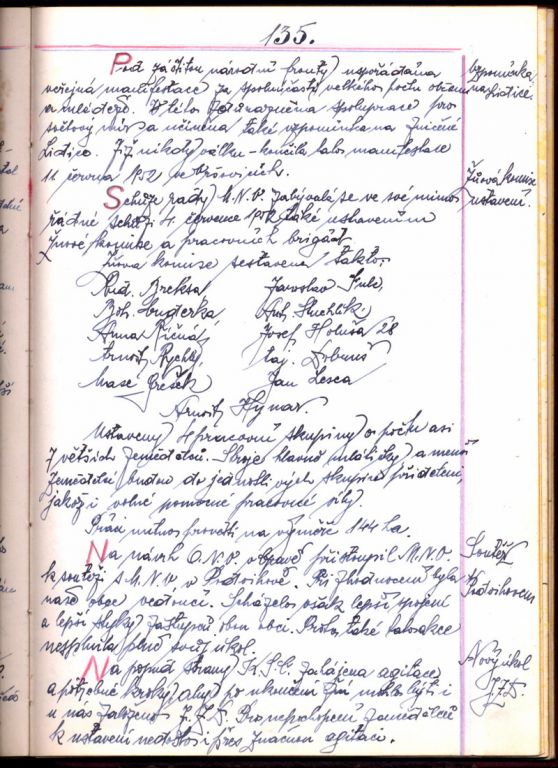 135.
Pod záštitou národní fronty uspořádána
veřejná manifestace za spoluúčasti velkého počtu občanů
a mládeže. V této zdůrazněna spolupráce pro
světový mír a učiněna také vzpomínka na zničené
Lidice. Již nikdy válku - končila tato manifestace
11 června 1952 ve
vzpomínka
na Lidice.
Schůze rady M.N.V. zabývala se ve své mimo
řádné schůzi 4 července 1952 také ustavením
žňové komise a pracovních brigád.
Žňová komise sestavena takto:
Žňová komise
ustavení.
Rud. Breksa Jaroslav
Boh. Anderka Ant. Stuchlík
Anna Říčná, Josef Holuša 28
Arnošt Rychlý,
Jan Lesca
Arnošt Hynar.
Ustaveny 4 pracovní skupiny o počtu asi
7 větších zemědělců. Stroje hlavně mlátičky a menší
zemědělci budou do jednotlivých skupin přiděleni,
jakož i volné pomocné pracovní síly.
Práci nutno provésti na výměře 144 ha.
Na návrh O.N.V. v Opavě přistoupil M.N.V.
k soutěži s M.N.V. v Při zhodnocení byla
naše obec vedoucí. Scházelo však lepší spojení
a lepší styky zástupců obou obcí. Proto také tato akce
nesplnila plně svůj úkol.
Soutěž
Na popud strany K.S.Č. zahájena agitace
a potřebné kroky aby po ukončení žní mohlo býti i
u nás založeno J.Z.D. Pro nepochopení zemědělců
k ustavení nedošlo i přes značnou agitaci.
Nový úkol
J.Z.D.